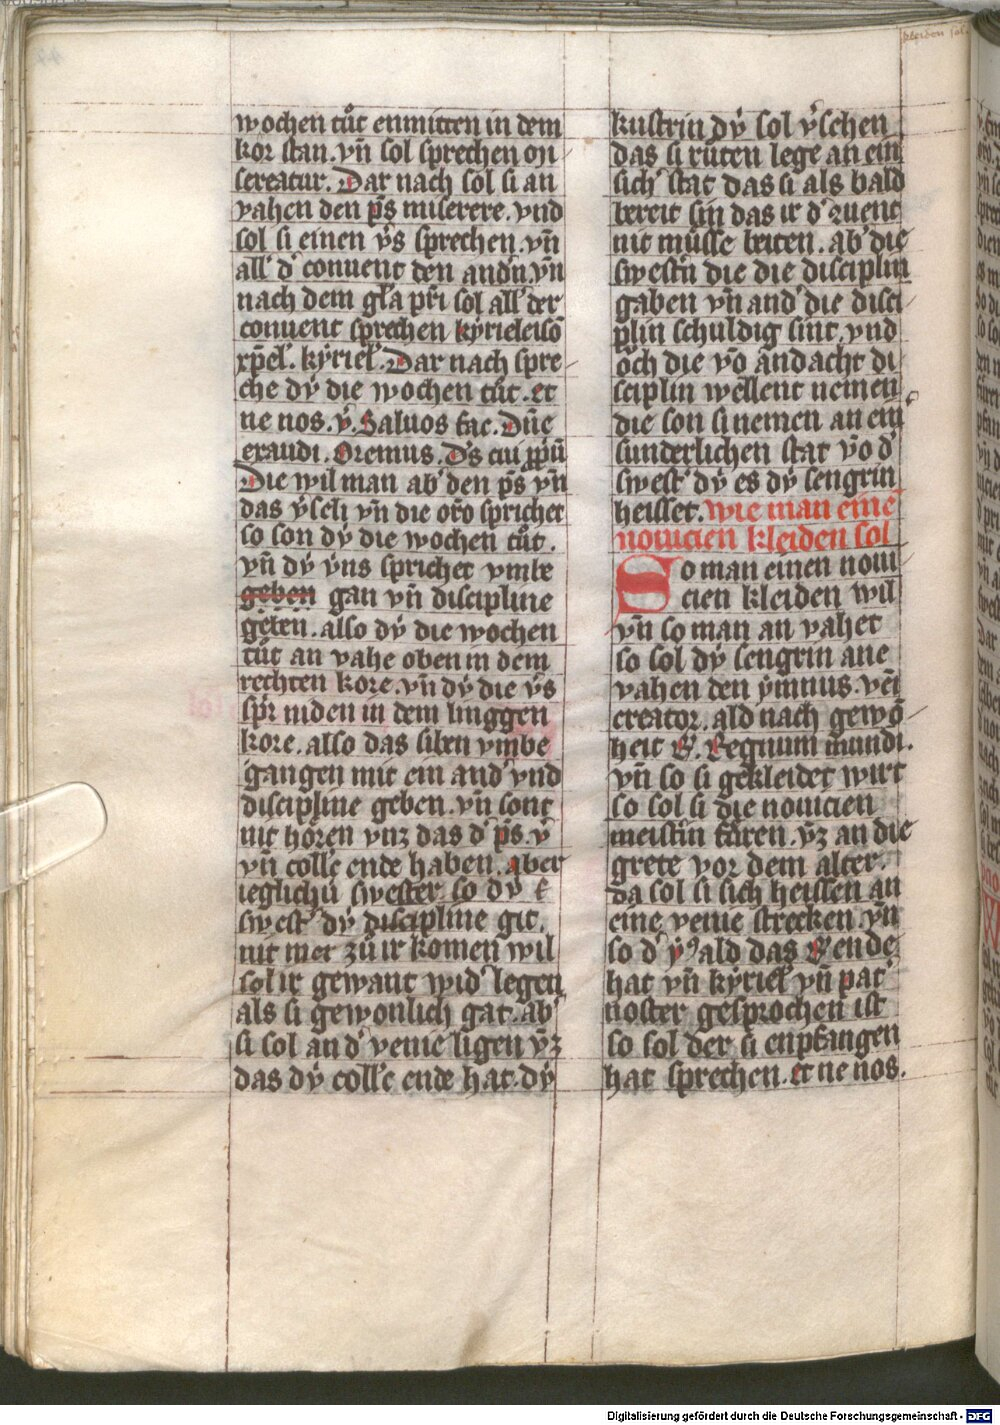 kleiden sol
wochen tuͦt enmitten in dem
kor stan. vn̄ sol sprechen on
sereatur. Dar nach sol si an
vahen den p̄s miserere. vnd
sol si einen v̓s sprechen. vn̄
all̓ d̓ conuent den and̓n. vn̄
nach dem gl̓a pr̄i sol all̓ der
conuent sprechen kẏrieleisō
xp̄el̓. kẏriel̓. Dar nach spre
che dv̓ die wochen tuͦt. et
ne nos. v̓. Saluos fac. Dn̄e
exaudi. Oremus. D̓s cui p̱p̱ū
Die wil man ab̓ den p̄s vn̄
das v̓seli vn̄ die or̄o sprichet
so son dv̓ die wochen tuͦt.
vn̄ dv̓ v̓ns sprichet vmbe
geben gan vn̄ discipline
geben. also dv̓ die wochen
tuͦt an vahe oben in dem
rechten kore. vn̄ dv̓ die v̓s
spr̓ niden in dem linggen
kore. also das silen vmbe
gangen mit ein and̓ vnd
discipline geben. vn̄ sont
nit hoͤren vnz das d̓ p̄s. v̓
vn̄ coll̓e ende haben. aber
ieglichv̓ swester. so dv̓
swest̓ dv̓ discipline git.
nit met zuͦ ir komen wil
sol ir gewant wid̓ legen
als si gewonlich gat. ab̓
si sol an d̓ venie ligen v̓z
das dv̓ coll̓e ende hat. dv̓
kustrin dv̓ sol v̓schen
das si ruͤten lege an ein
sich̓ stat das si als bald
bereit sin das ir d̓ 9uent
nit muͤsse beiten. ab̓ die
swest̓n die die disciplin
gaben vn̄ and̓ die disci
plin schuldig sint. vnd
oͤch die vō andacht di
sciplin wellent nemen
die son si nemen an ein̓
sunderlichen stat vō d̓
swest̓ dv̓ es dv̓ sengrin
heisset. wie man eine
nouicien kleiden sol
So man einen noui
cien kleiden wil
vn̄ so man an vahet
so sol dv̓ sengrin ane
vahen den ẏmnus. veni
creator. ald nach gewō
heit R̓. Regnum mundi.
vn̄ so si gekleidet wirt
so sol si die nouicien
meistin fuͤren. v̓z an die
grete vor dem alter.
da sol si sich heissen an
eine venie strecken. vn̄
so d̓ v̓9 ald das R̓ ende
hat vn̄ kẏriel̓ vn̄ pat̓
noster gesprochen ist
so sol der si enpfangen
hat sprechen. et ne nos.
Digitalisierung gefördert durch die Deutsche Forschungsgemeinschaft - DFG